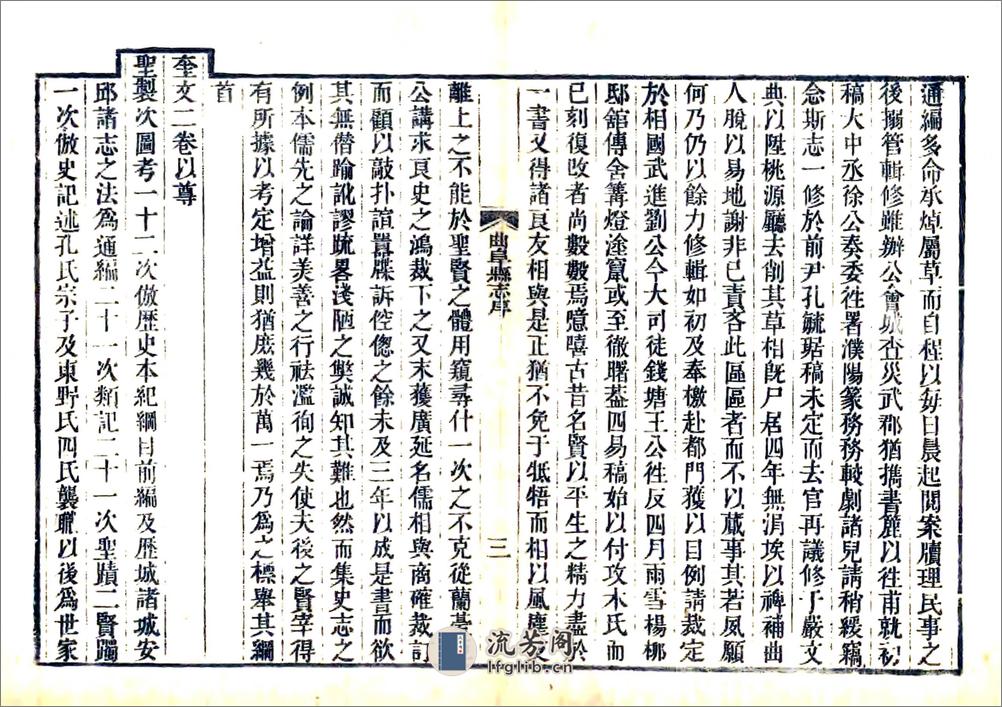 通編多命承焯屬草而自程以每日晨起閱案牘理民事之
後搦管輯修雖辦公會城查災武郡猶攜書簏以往甫就初
稿大中丞徐公奏委徃署濮陽篆務務較劇諸兒請稍緩竊
念斯志一修於前尹孔毓琚稿未定而去官再議修于嚴文
典以陞桃源廳去削其草相旣尸居四年無涓埃以裨補曲
人脫以易地謝非己責吝此區區者而不以蕆事其若夙願
何乃仍以餘力修輯如初及奉檄赴都門獲以目例請裁定
於相國武進劉公今大司徒錢塘王公徃反四月雨雪楊桺
邸舘傳舍篝燈塗竄或至徹曙葢四易稿始以付攻木氏而
已刻復改者尚數數焉噫嘻古昔名賢以平生之精力盡於
一書又得諸良友相與是正猶不免于牴牾而相以風塵
曲阜縣志序
三
離上之不能於聖賢之體用窺尋什一次之不克從蘭臺
公講求良史之鴻裁下之又未獲廣延名儒相與商確裁訂
而顧以敲扑諠囂牒訴倥偬之餘未及三年以成是書而欲
其無僭踰訛謬疏畧淺陋之獘誠知其難也然而集史志之
例本儒先之論詳美善之行祛濫徇之失使夫後之賢宰得
有所據以考定增益則猶庶幾於萬一焉乃爲之標舉其綱
首
奎文二卷以尊
聖製次圖考一十二次倣歷史本紀綱目前編及歷城諸城安
邱諸志之法爲通編二十一次類記二十一次聖蹟二賢躅
一次倣史記述孔氏宗子及東野氏四氏襲職以後爲世家
流芳阁
lfglib.cn